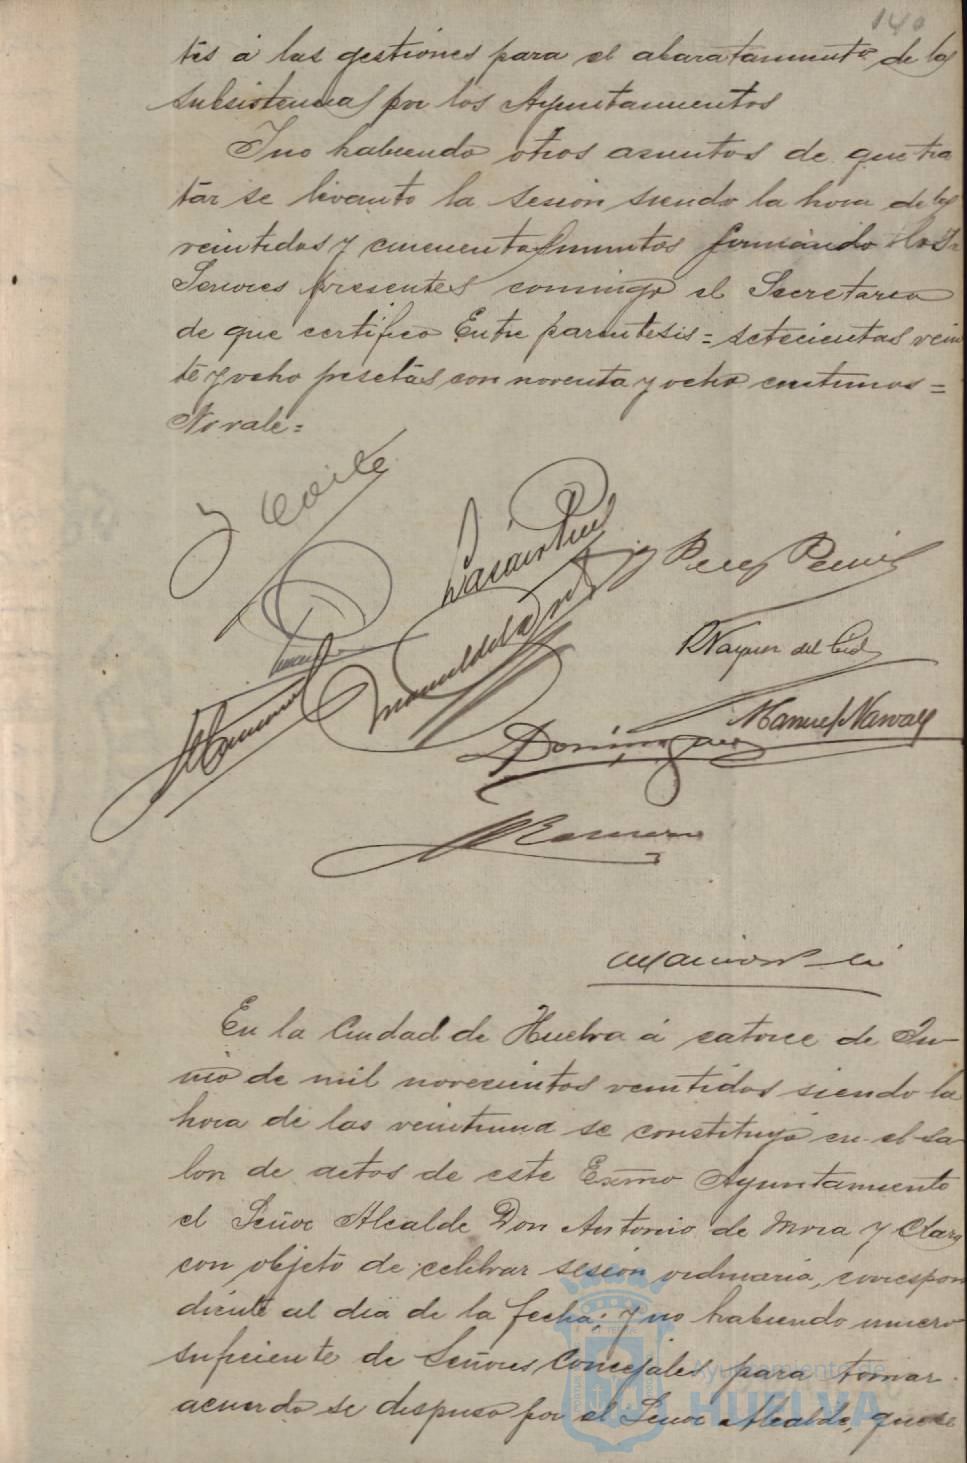 140
tes á las gestiones para el abaratamiento de las
subsistencias por los Ayuntamientos
Y no habiendo otros asuntos de que tra
tar se levanto la sesión siendo la hora de las
veintidos y cincuenta minutos firmando los
Señores presentes conmigo el Secretario
de que certifico Entre parentesis = setecientas vein
te y ocho pesetas con noventa y ocho centimos =
No vale =
Perez
R Vazquez del Cid
Manuel Navas
Dominguez
En la Ciudad de Huelva á catorce de Ju-
nio de mil novecientos veintidos siendo la
hora de las veintiuna se constituyó en el sa-
lon de actos de este Exmo Ayuntamiento
el Señor Alcalde Don Antonio de Mora y Claro
con objeto de celebrar sesión ordinaria, correspon
diente al dia de la fecha; y no habiendo numero
suficiente de Señores Concejales para tomar
acuerdo se dispuso por el Señor Alcalde, que se
Ayuntamiento de
HUELVA